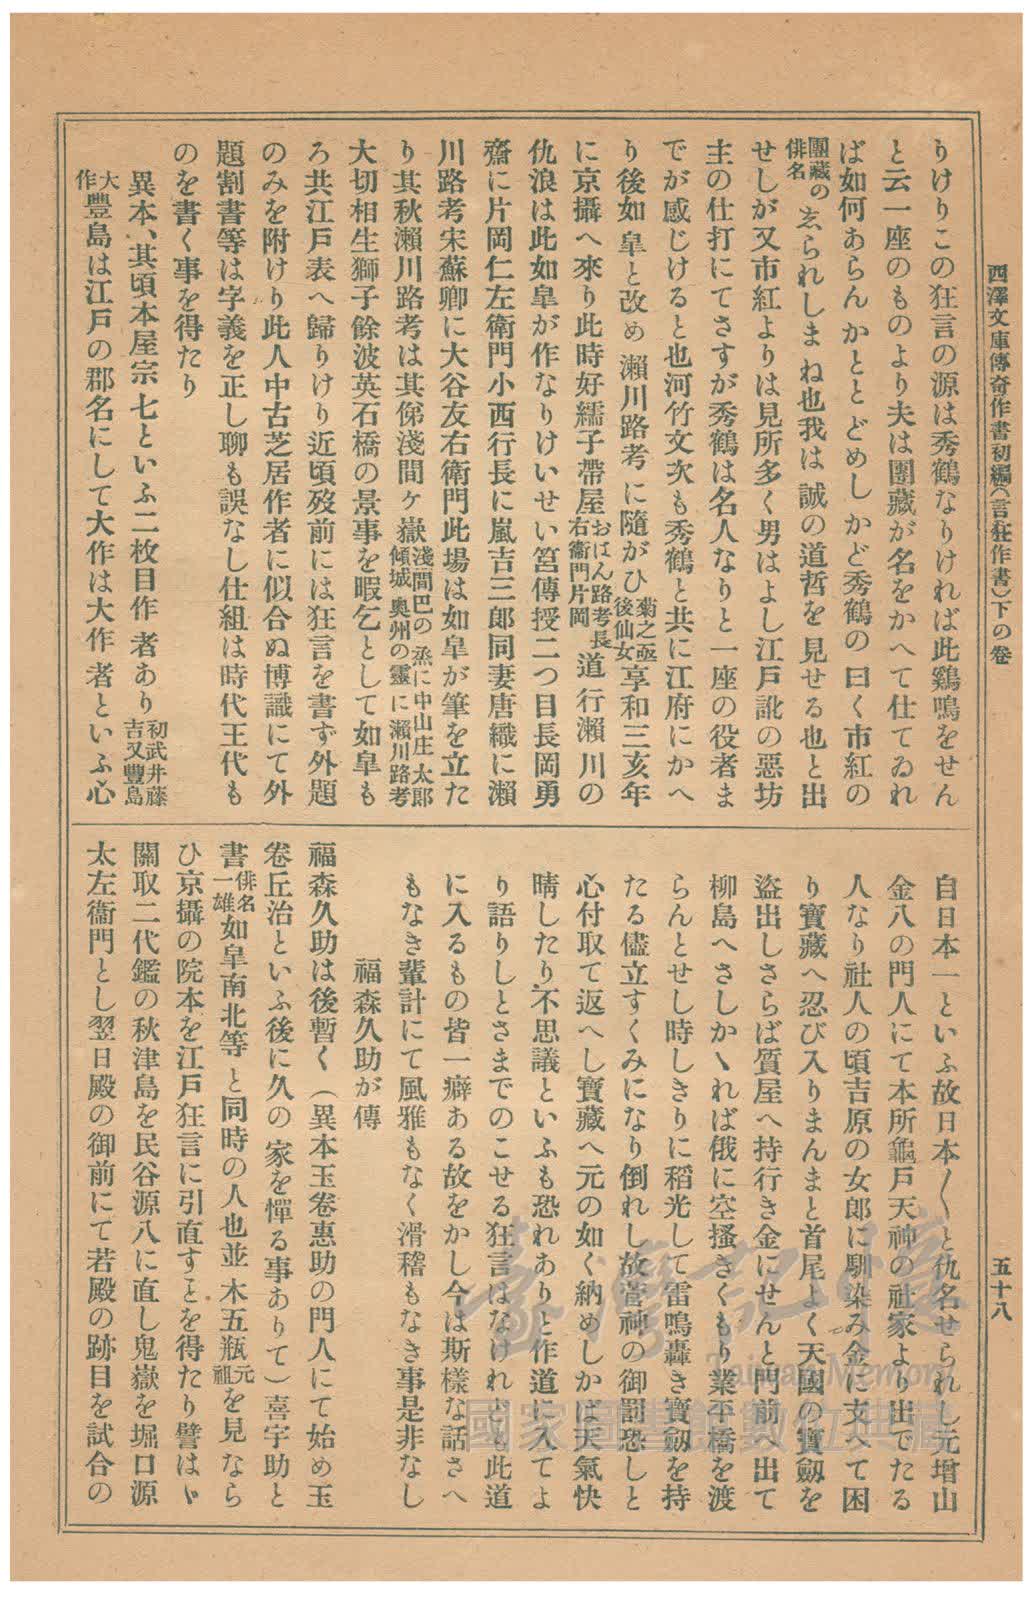 西澤文庫傳奇作書初編(言狂作書)下の卷
五十八
りけりこの狂言の源は秀鶴なりければ此鷄鳴をせん
と云一座のものより夫は團藏が名をかへて仕てゐれ
ば如何あらんかととどめしかど秀鶴の曰く市紅の
團藏の俳名ゑられしまね也我は誠の道哲を見せる也と出
せしが又市紅よりは見所多く男はよし江戸訛の惡坊
主の仕打にてさすが秀鶴は名人なりと一座の役者ま
でが感じけると也河竹文次も秀鶴と共に江府にかへ
り後如皐と改め瀨川路考に隨がひ菊之亟後仙女享和三亥年
に京攝へ來り此時好繻子帶屋おはん路考長右衞門片岡道行瀨川の
仇浪は此如皐が作なりけいせい筥傳授二つ目長岡勇
齋に片岡仁左衞門小西行長に嵐吉三郎同妻唐織に瀨
川路考宋蘇卿に大谷友右衞門此場は如皐が筆を立た
り其秋瀨川路考は其俤淺間ヶ嶽淺間巴の烝に中山庄太郎傾城奧州の靈に瀨川路考
大切相生獅子餘波英石橋の景事を暇乞として如皐も
ろ共江戸表へ歸りけり近頃歿前には狂言を書ず外題
のみを附けり此人中古芝居作者に似合ぬ博識にて外
題割書等は字義を正し聊も誤なし仕組は時代王代も
のを書く事を得たり
異本、其頃本屋宗七といふ二枚目作者あり初武井藤吉又豐島
大作豐島は江戸の郡名にして大作は大作者といふ心
自日本一といふ故日本〳〵と仇名せられし元增山
金八の門人にて本所龜戸天神の社家より出でたる
人なり社人の頃吉原の女郎に馴染み金に支へて困
り寶藏へ忍び入りまんまと首尾よく天國の寶劔を
盜出しさらば質屋へ持行き金にせんと門前へ出て
柳島へさしかゝれば俄に空搔きくもり業平橋を渡
らんとせし時しきりに稻光して雷鳴轟き寶劔を持
たる儘立すくみになり倒れし故菅神の御罰恐しと
心付取て返へし寶藏へ元の如く納めしかば天氣快
晴したり不思議といふも恐れありと作道に入てよ
り語りしとさまでのこせる狂言はなけれども此道
に入るもの皆一癖ある故をかし今は斯樣な話さへ
もなき輩計にて風雅もなく滑稽もなき事是非なし
福森久助が傳
福森久助は後暫く(異本玉卷惠助の門人にて始め玉
卷丘治といふ後に久の家を憚る事ありて)喜宇助と
書俳名一雄如皐南北等と同時の人也並木五瓶元祖を見なら
ひ京攝の院本を江戸狂言に引直すことを得たり譬はゞ
關取二代鑑の秋津島を民谷源八に直し鬼嶽を堀口源
太左衞門とし翌日殿の御前にて若殿の跡目を試合の
臺灣記憶
Taiwan Memory
國家圖書館數位典藏